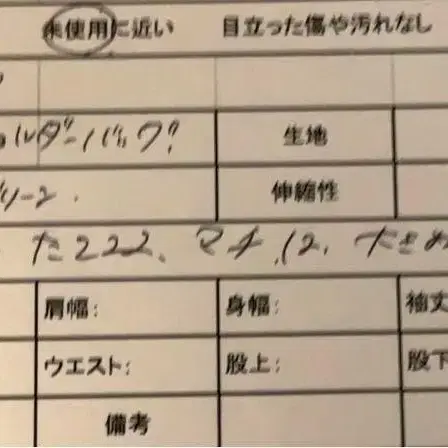 未使用に近い 目立った傷や汚れなし
ルダーバック! 生地
リーン. 伸縮性
た222、マチ12、たきめ
肩幅: 身幅: 袖丈
ウエスト: 股上: 股下
備考